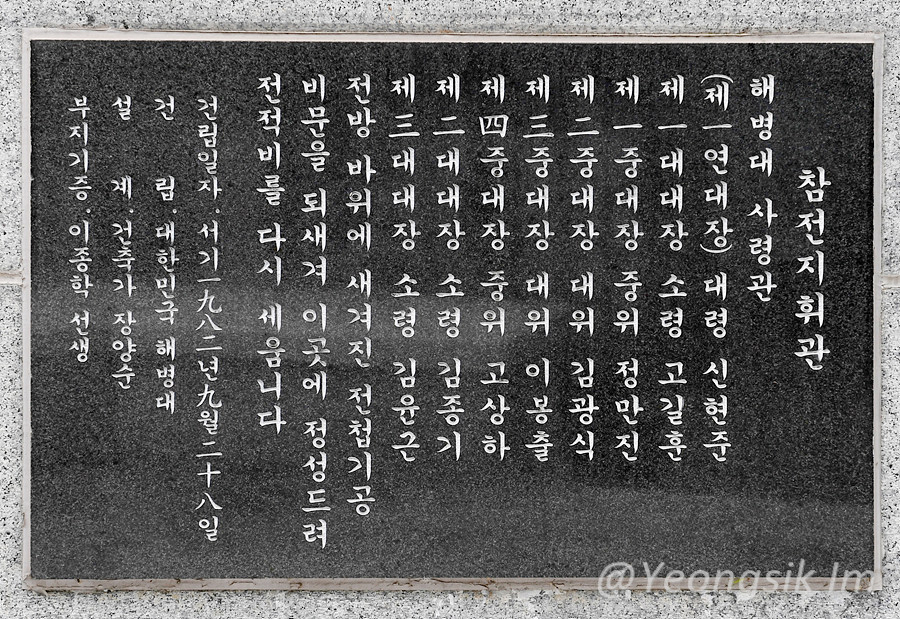 참전지휘관
해병대 사령관
(제一연대장) 대령 신현준
제一대대장 소령 고길훈
제一중대장 중위 정만진
제二중대장 대위 김광식
제三중대장 대위 이봉출
제四중대장 중위 고상하
제二대대장 소령 김종기
제三대대장 소령 김윤근
전방 바위에 새겨진 전첩기공
비문을 되새겨 이곳에 정성드려
전적비를 다시 세웁니다
건립일자·서기一九八二년九월二十八일
건 립·대한민국 해병대
설 계·건축가 장양순
부지기증·이종학 선생
@Yeongsik Im